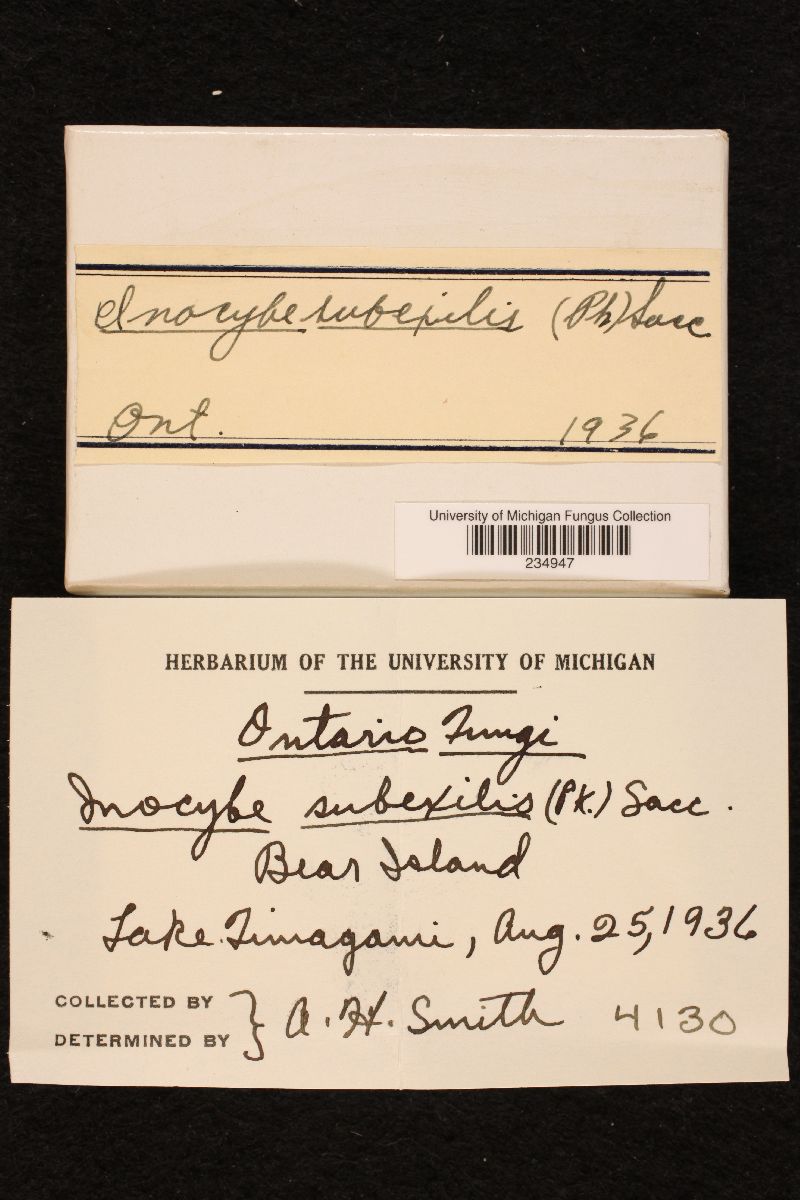 Inocybe subexilis (Pk) Sacc
Ont. 1936
University of Michigan Fungus Collection
234947
HERBARIUM OF THE UNIVERSITY OF MICHIGAN
Ontario Fungi
Inocybe subexilis (Pk.) Sacc.
Bear Island
Lake Timagami, Aug. 25, 1936
COLLECTED BY
DETERMINED BY } A. H. Smith 4130